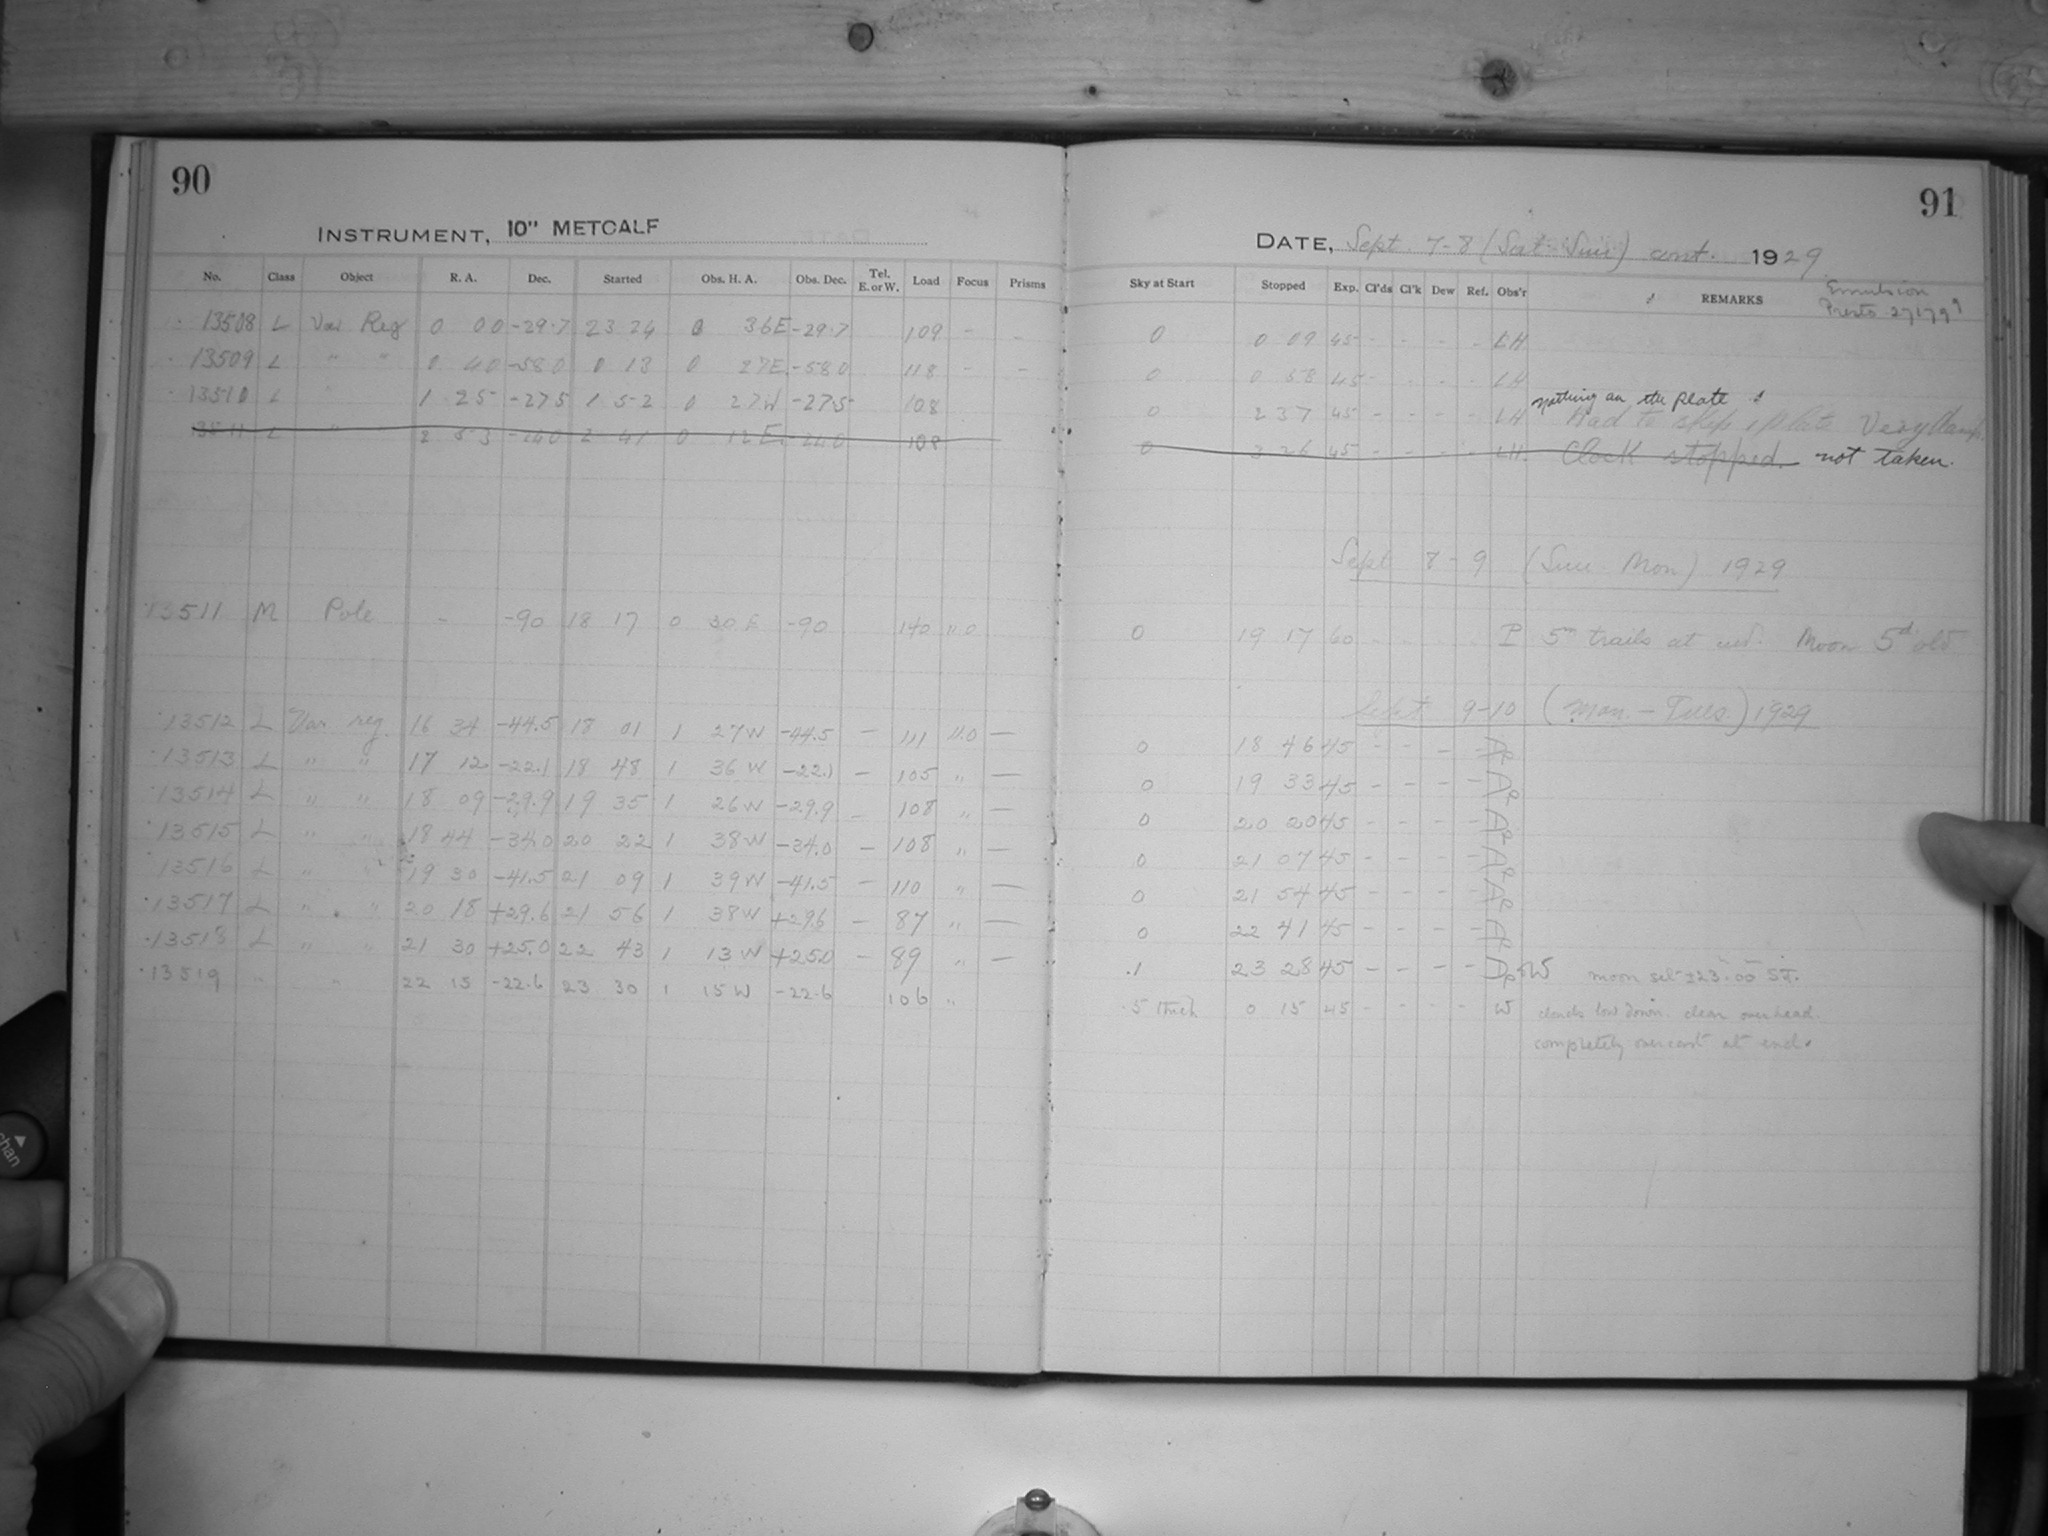 90
INSTRUMENT, 10" METCALF
No. Class Object R. A. Dec. Started Obs. H. A. Obs. Dec. Tel. E. or W. Load Focus Prisms
13508 L Var Reg 0 00 -29.7 23 24 0 36E -29.7 109 - -
13509 L " " 0 40 -58.0 0 13 0 27E -58.0 118 - -
13510 L " 1 25 -27.5 1 52 0 27W -27.5 108
13511 L " 2 53 -24.0 2 41 0 12E -24.0 108
13511 M Pole - -90 18 17 0 30E -90 140 11.0
13512 L Var reg. 16 34 -44.5 18 01 1 27W -44.5 - 111 11.0 -
13513 L " " 17 12 -22.1 18 48 1 36W -22.1 - 105 " -
13514 L " " 18 09 -29.9 19 35 1 26W -29.9 - 108 " -
13515 L " " 18 44 -34.0 20 22 1 38W -34.0 - 108 " -
13516 L " " 19 30 -41.5 21 09 1 39W -41.5 - 110 " -
13517 L " " 20 18 +29.6 21 56 1 38W +29.6 - 87 " -
13518 L " " 21 30 +25.0 22 43 1 13W +25.0 - 89 " -
13519 " " 22 15 -22.6 23 30 1 15W -22.6 106 "
91
DATE, Sept. 7-8 (Sat-Sun) cont. 1929
Sky at Start Stopped Exp. Cl'ds Cl'k Dew Ref. Obs'r REMARKS
Emulsion
Presto 27179
0 0 09 45 - - - - LH
0 0 58 45 - - - - LH
nothing on the plate
0 2 37 45 - - - - LH Had to skip 1 plate Very damp.
0 3 26 45 - - - - LH. Clock stopped. not taken.
Sept 8-9 (Sun-Mon) 1929
0 19 17 60 P 5m trails at end. Moon 5d old
Sept 9-10 (Mon.-Tues) 1929
0 18 46 45 - - - - AP
0 19 33 45 - - - - AP
0 20 20 45 - - - - AP
0 21 07 45 - - - - AP
0 21 54 45 - - - - AP
0 22 41 45 - - - - AP
.1 23 28 45 - - - - AP+W moon set ±23.00 S.T.
.5 thick 0 15 45 - - - - W clouds low down. clear overhead.
completely overcast at end.